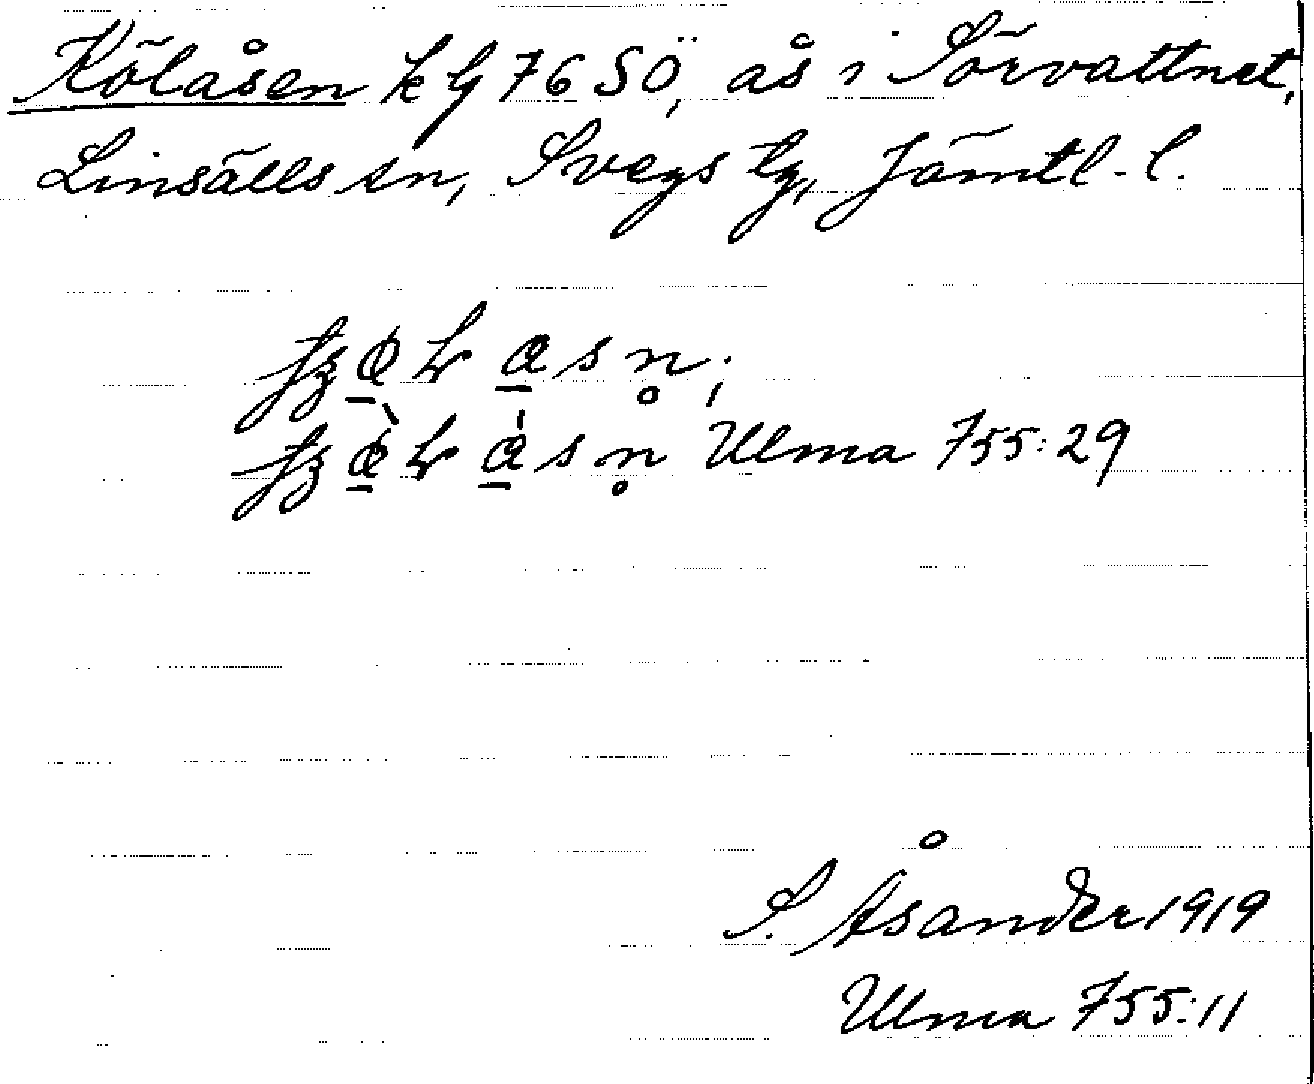 Kölåsen kG 76 SÖ, ås i Sörvattnet,
Linsälls sn, Svegs tg, Jämtl. l.
Ulma 755:29
S. Åsander 1919
Ulma 755:11